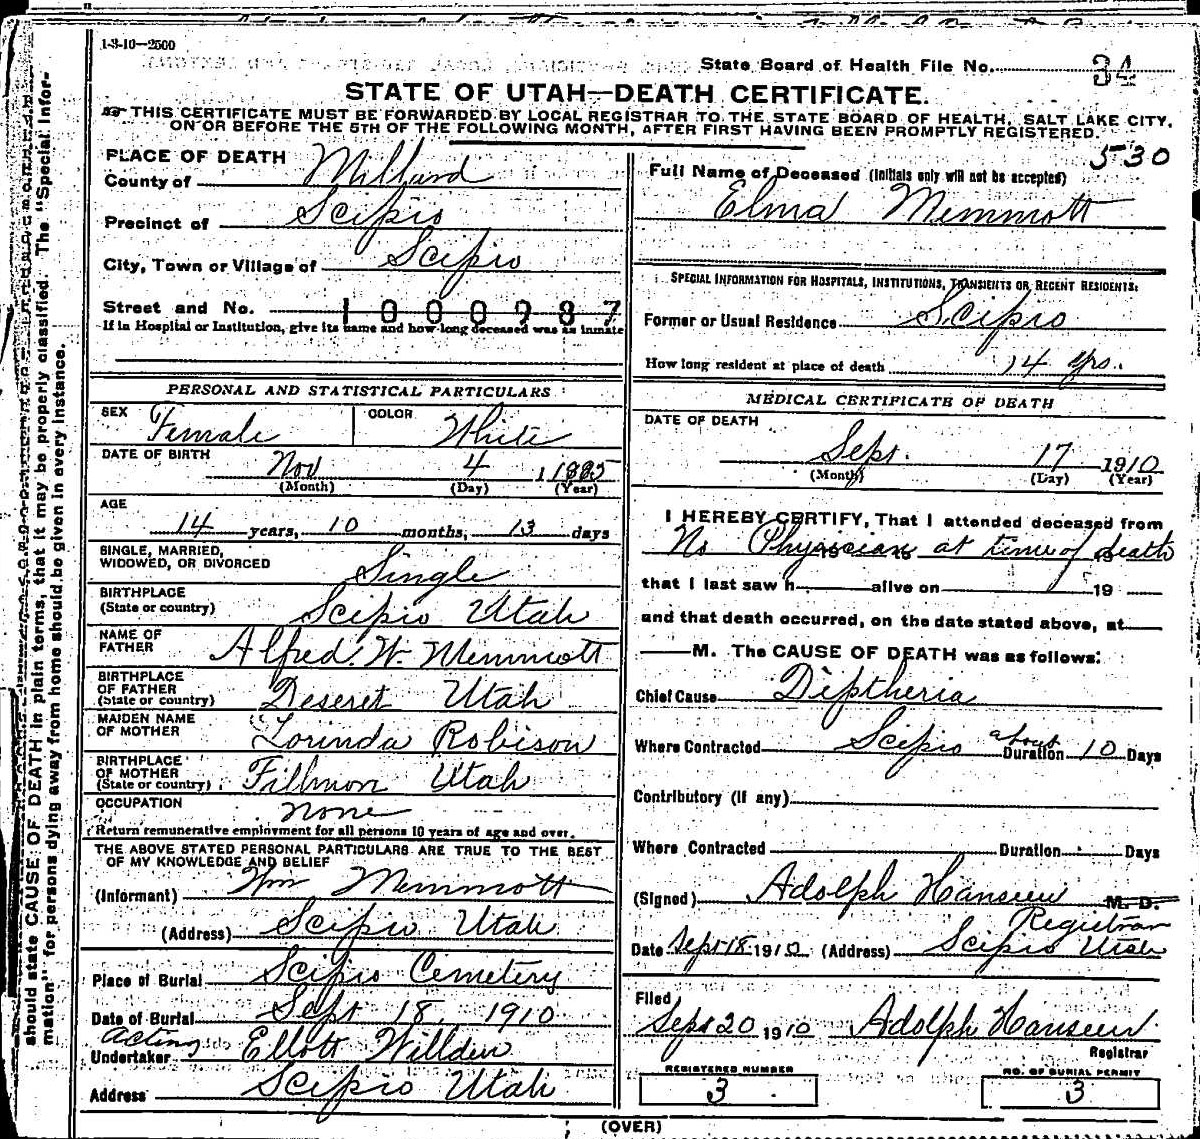 1-3-10—2500
State Board of Health File No. 34
STATE OF UTAH—DEATH CERTIFICATE.
THIS CERTIFICATE MUST BE FORWARDED BY LOCAL REGISTRAR TO THE STATE BOARD OF HEALTH, SALT LAKE CITY,
ON OR BEFORE THE 5TH OF THE FOLLOWING MONTH, AFTER FIRST HAVING BEEN PROMPTLY REGISTERED.
530
PLACE OF DEATH
County of Millard
Precinct of Scipio
City, Town or Village of Scipio
Street and No. 1000987
If in Hospital or Institution, give its name and how long deceased was as inmate
PERSONAL AND STATISTICAL PARTICULARS
SEX Female COLOR White
DATE OF BIRTH Nov 4, 1895
(Month) (Day) (Year)
AGE
14 years, 10 months, 13 days
SINGLE, MARRIED,
WIDOWED, OR DIVORCED Single
BIRTHPLACE
(State or country) Scipio Utah
NAME OF
FATHER Alfred. W. Memmott
BIRTHPLACE
OF FATHER
(State or country) Deseret Utah
MAIDEN NAME
OF MOTHER Lorinda Robison
BIRTHPLACE
OF MOTHER
(State or country) Fillmor Utah
OCCUPATION none
Return remunerative employment for all persons 10 years of age and over.
THE ABOVE STATED PERSONAL PARTICULARS ARE TRUE TO THE BEST
OF MY KNOWLEDGE AND BELIEF
(Informant) Wm Memmott
(Address) Scipio Utah
Place of Burial Scipio Cemetery
Date of Burial Sept 18, 1910
Acting
Undertaker Ellott Willden
Address Scipio Utah
Full Name of Deceased (Initials only will not be accepted)
Elma Memmott
SPECIAL INFORMATION FOR HOSPITALS, INSTITUTIONS, TRANSIENTS OR RECENT RESIDENTS:
Former or Usual Residence Scipio
How long resident at place of death 14 yrs.
MEDICAL CERTIFICATE OF DEATH
DATE OF DEATH
Sept. 17 1910
(Month) (Day) (Year)
I HEREBY CERTIFY, That I attended deceased from
No Physician at time of death
that I last saw h alive on 19
and that death occurred, on the date stated above, at
M. The CAUSE OF DEATH was as follows:
Chief Cause Diptheria
Where Contracted Scipio about Duration 10 Days
Contributory (if any)
Where Contracted Duration Days
(Signed) Adolph Hanseen M. D.
Registrar
Date Sept 18 1910 (Address) Scipio Utah
Filed
Sept 20 1910 Adolph Hanseen
Registrar
REGISTERED NUMBER
3
NO. OF BURIAL PERMIT
3
(OVER)
should state CAUSE OF DEATH in plain terms, that it may be properly classified. The "Special Infor-
mation" for persons dying away from home should be given in every instance.